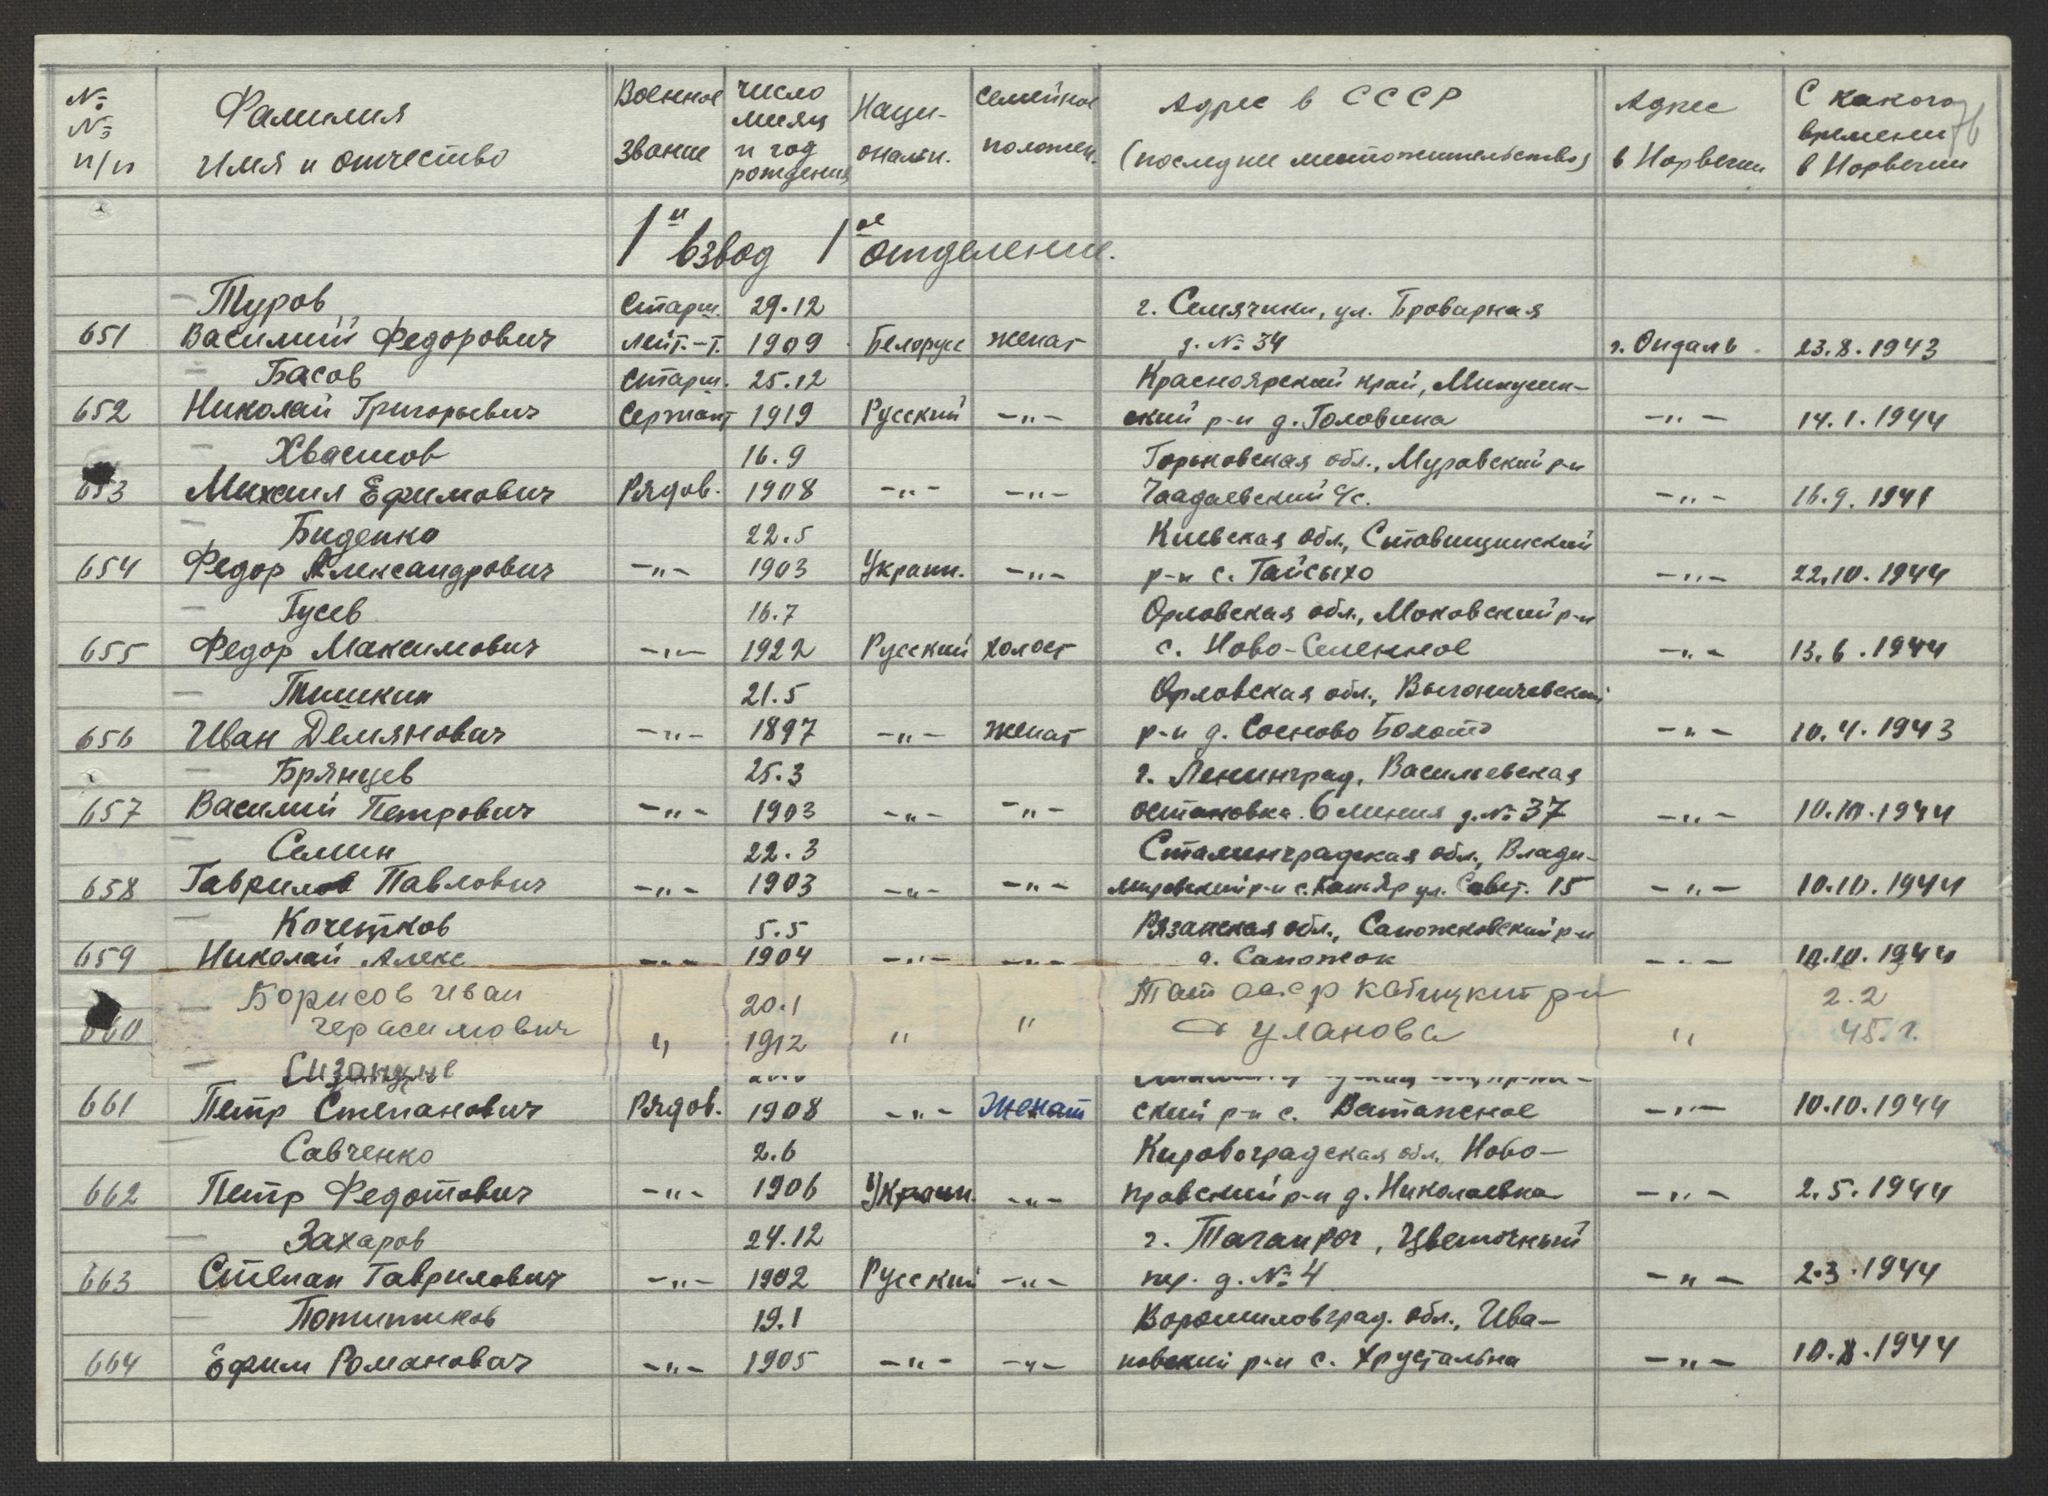 № № п/п | Фамилия Имя и отчество | Военное звание | число месяц и год рождения | Наци-ональн. | Семейное положен. | Адрес в СССР (последнее местожительство) | Адрес в Норвегии | С какого времени в Норвегии
76
1й взвод 1ое отделение.
Туров | Старш. | 29.12 | г. Семятичи, ул. Броварная
651 | Василий Федорович | Лейт.-т. | 1909 | Белорусс | женат | д. № 34 | г. Опдаль | 23.8.1943
Басов | Старш. | 25.12 | Красноярский край, Минусин-
652 | Николай Григорьевич | Сержант | 1919 | Русский | -"- | ский р-н д. Головина | -"- | 14.1.1944
Хвастов | 16.9 | Горьковская обл., Муравский р-н
653 | Михаил Ефимович | Рядов. | 1908 | -"- | -"- | Чаадаевский с/с. | -"- | 16.9.1941
Биденко | 22.5 | Киевская обл., Ставищинский
654 | Федор Александрович | -"- | 1903 | Украин. | -"- | р-н с. Гайсыхо | -"- | 22.10.1944
Гусев | 16.7 | Орловская обл., Моковский р-н
655 | Федор Максимович | -"- | 1922 | Русский | холост | с. Ново-Селенное | -"- | 13.6.1944
Тишкин | 21.5 | Орловская обл., Выгоничевский
656 | Иван Демянович | -"- | 1897 | -"- | женат | р-н д. Сосново Болото | -"- | 10.4.1943
Брянцев | 25.3 | г. Ленинград, Васильевская
657 | Василий Петрович | -"- | 1903 | -"- | -"- | остановка 6 линия д. № 37 | -"- | 10.10.1944
Семин | 22.3 | Сталинградская обл., Влади-
658 | Гаврилов Павлович | -"- | 1903 | -"- | -"- | мировский р-н с. Кап-Яр ул. Совет. 15 | -"- | 10.10.1944
Кочетков | 5.5 | Рязанская обл., Сапожковский р-н
659 | Николай Алекс | -"- | 1904 | -"- | -"- | д. Сапожок | -"- | 10.10.1944
Борисов Иван | 20.1 | Тат асср | 2.2
660 | Герасимович | " | 1912 | " | " | Уланова | " | 45.г.
661 | Петр Степанович | Рядов. | 1908 | -"- | Женат | ский р-н с. Ватажное | -"- | 10.10.1944
Савченко | 2.6 | Кировоградская обл. Ново-
662 | Петр Федотович | -"- | 1906 | Украин. | -"- | правский р-н д. Николаевка | -"- | 2.5.1944
Захаров | 24.12 | г. Таганрог, Цветочный
663 | Степан Гаврилович | -"- | 1902 | Русский | -"- | пер. д. № 4 | -"- | 2.3.1944
Потитиков | 19.1 | Ворошиловград. обл., Ива-
664 | Ефим Романович | -"- | 1905 | -"- | -"- | новский р-н с. Хрустальна | -"- | 10.8.1944